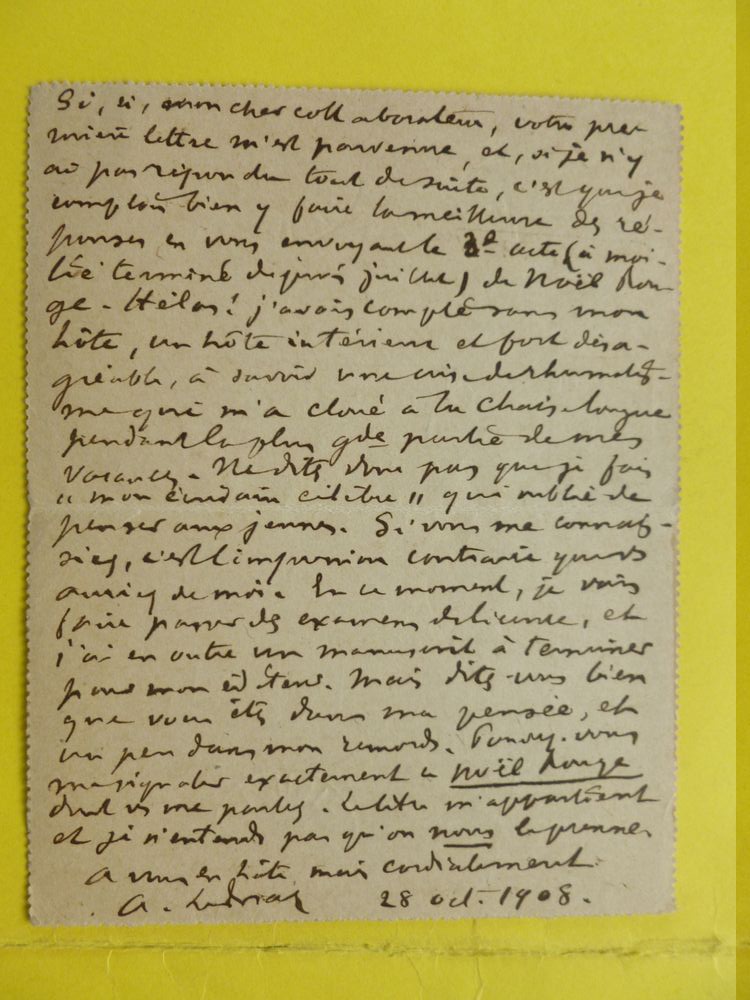 Si, si, mon cher collaborateur, votre pre-
mière lettre m'est parvenue, et, si je n'y
ai pas répondu tout de suite, c'est que je
comptais bien y faire la meilleure des ré-
ponses en vous envoyant le 2e acte (à moi-
tié terminé depuis juillet) de Noël Rou-
ge. Hélas! j'avais compté sans mon
hôte, un hôte intérieur et fort désa-
gréable, à savoir une crise de rhumatis-
me qui m'a cloué à la chaise longue
pendant la plus gde partie de mes
vacances. Ne dites donc pas que je fais
« mon écrivain célèbre » qui oublie de
penser aux jeunes. Si vous me connais-
siez, c'est l'impression contraire que vs
auriez de moi. En ce moment, je vais
faire passer des examens de licence, et
j'ai en outre un manuscrit à terminer
pour mon éditeur. Mais dites-vous bien
que vous êtes dans ma pensée, et
un peu dans mon remords. Pouvez-vous
me signaler exactement ce Noël Rouge
dont vs me parlez. Le titre m'appartient
et je n'entends pas qu'on nous le prenne.
A vous en hâte mais cordialement.
A. 28 oct. 1908.